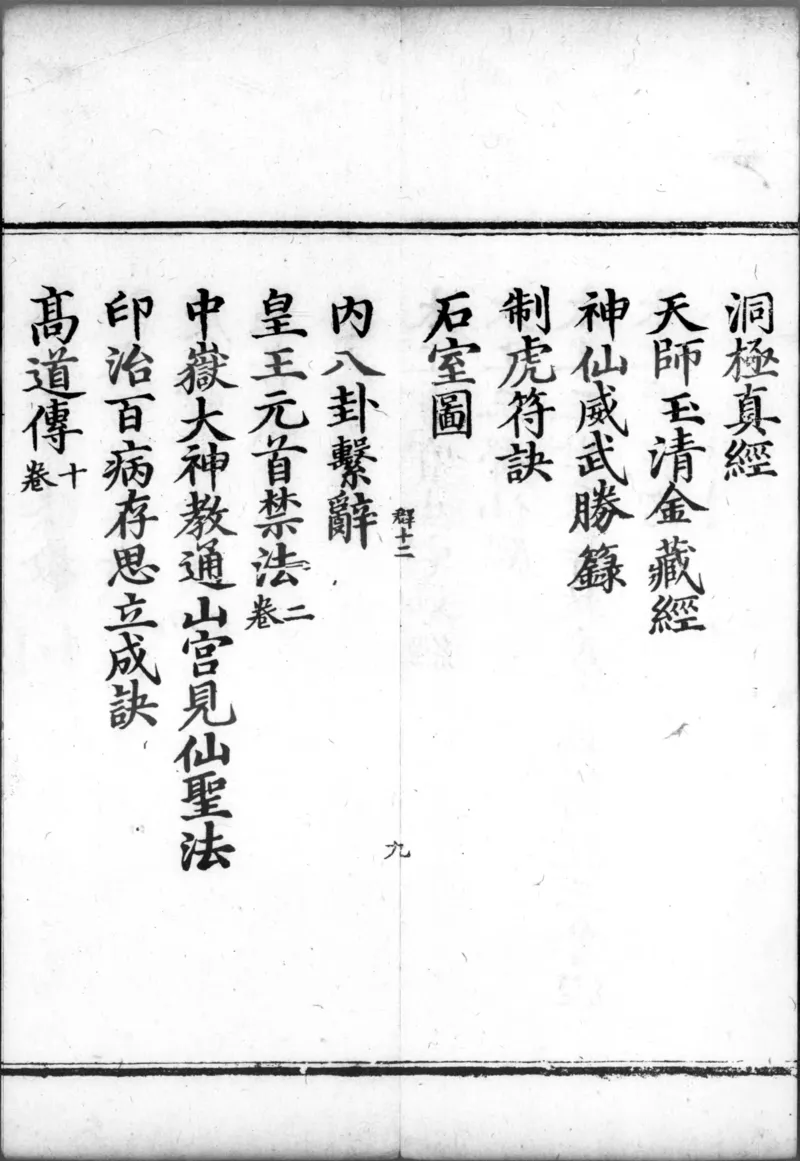 洞極真經
天師玉清金藏經
神仙威武勝籙
制虎符訣
石室圖
群十二
九
內八卦繫辭
皇王元首禁法二卷
中嶽大神教通山宮見仙聖法
印治百病存思立成訣
髙道傳十卷